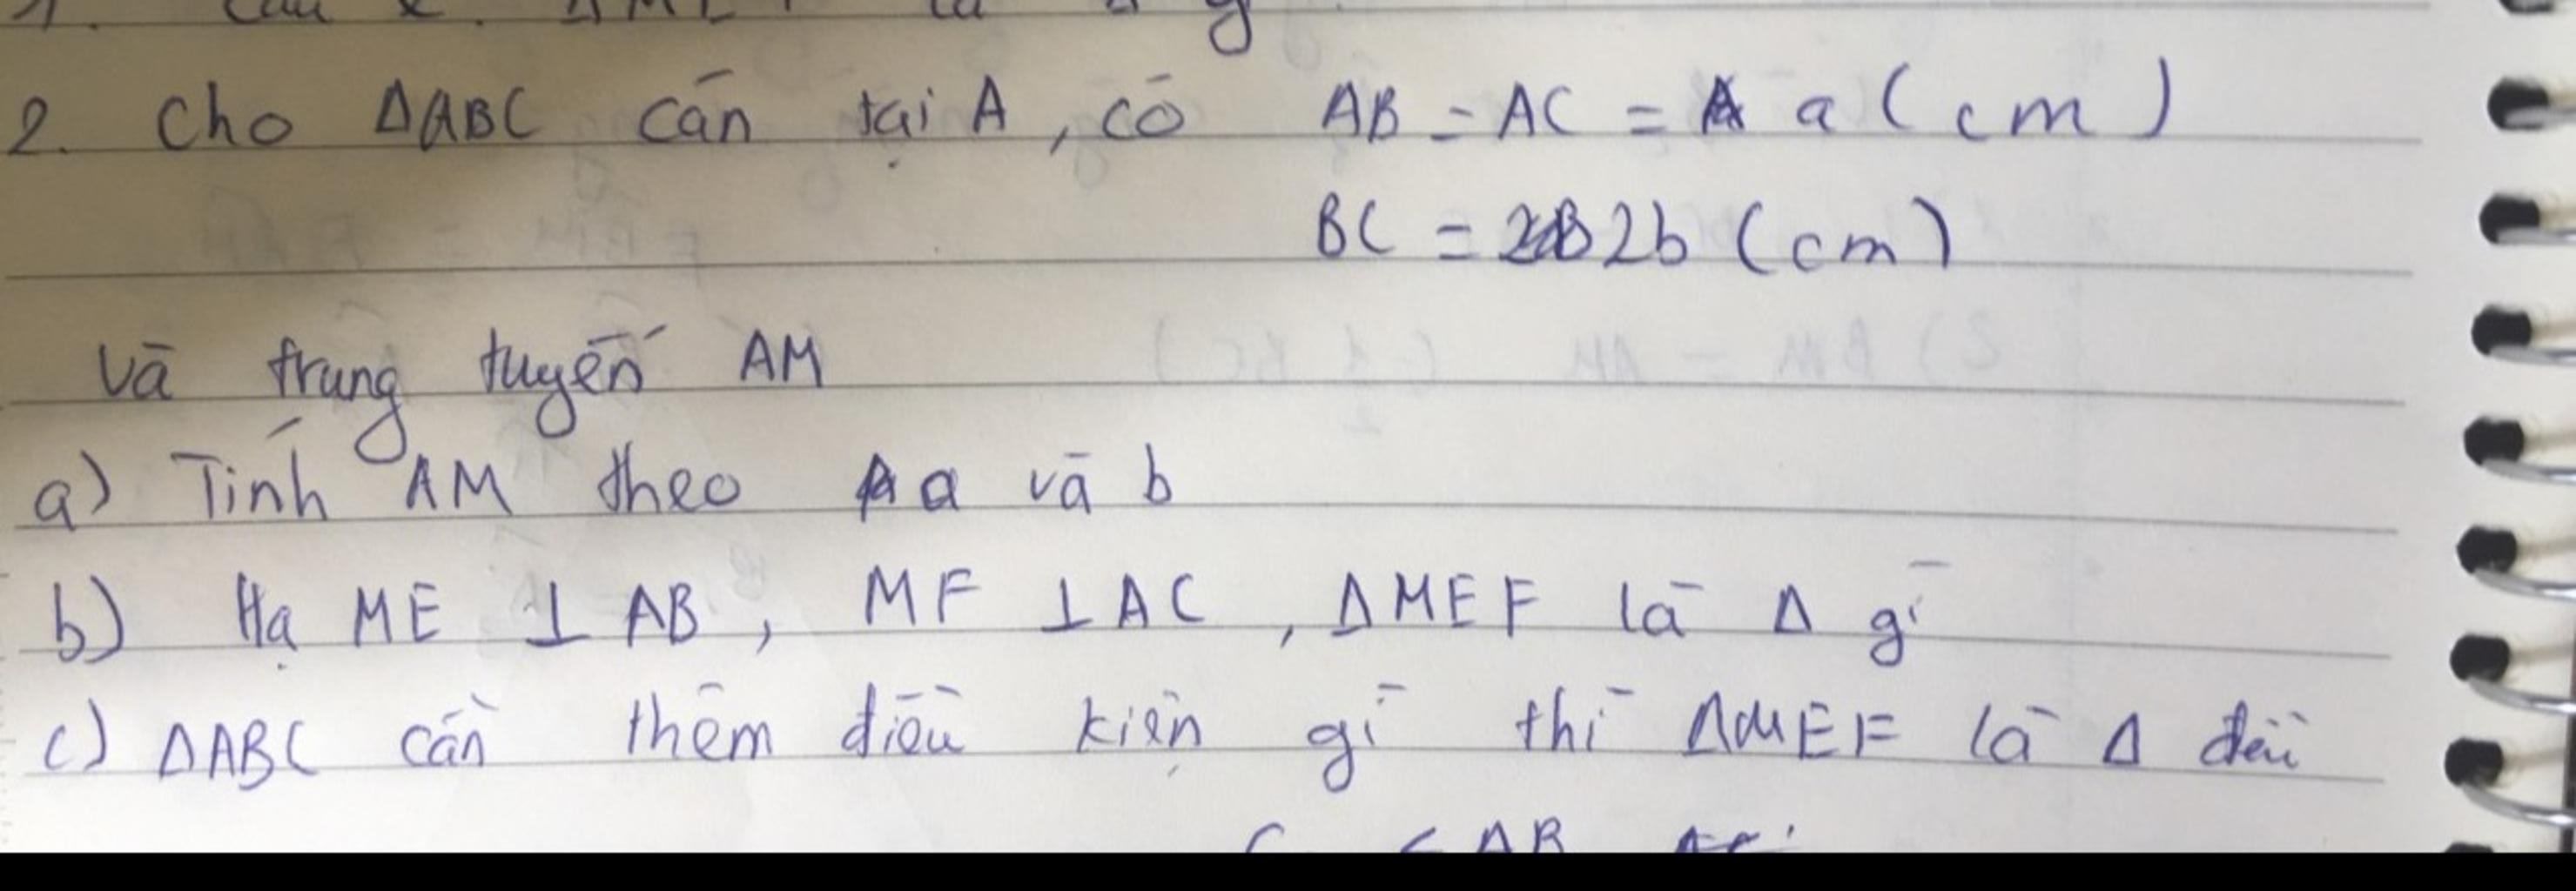 2. Cho ΔABC cân tại A, có AB = AC = a (cm)
BC = 2b (cm)
và trung tuyến AM
a) Tính AM theo a và b
b) Hạ ME ⊥ AB, MF ⊥ AC, ΔMEF là Δ gì
c) ΔABC cần thêm điều kiện gì thì ΔMEF là Δ đều